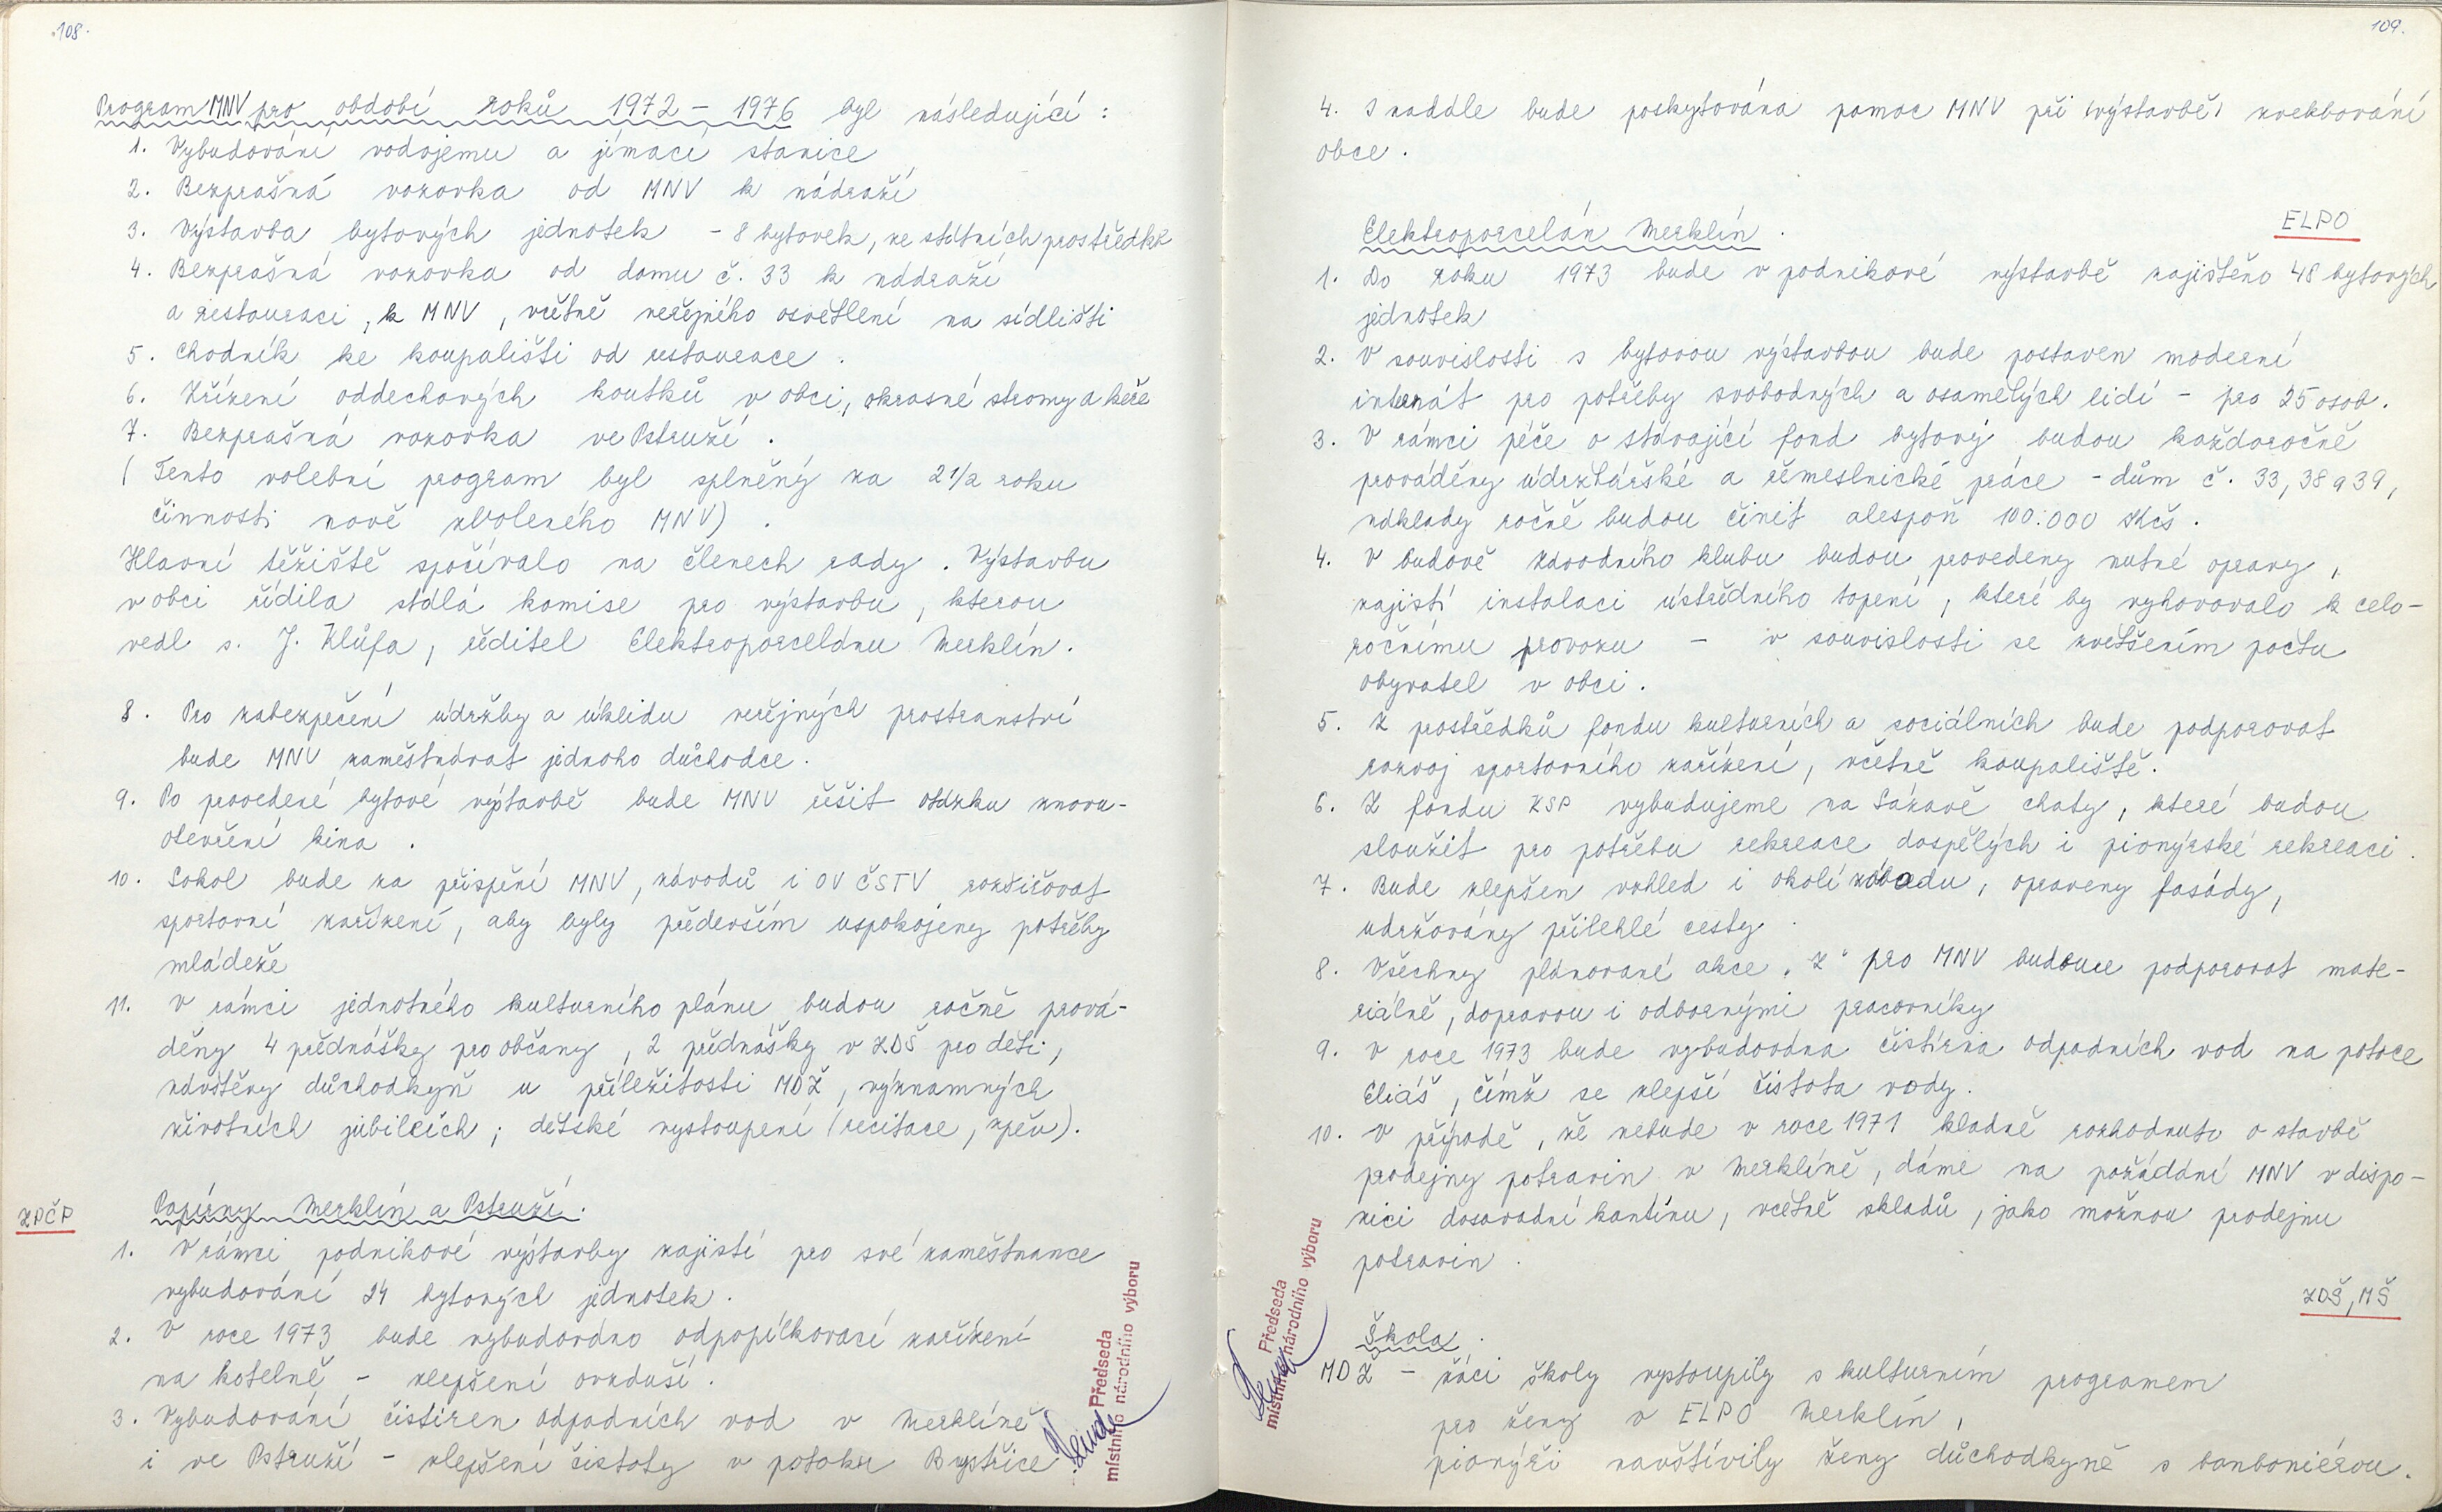 108.
Program MNV pro období roků 1972 – 1976 byl následující :
1. Vybudování vodojemu a jímací stanice
2. Bezprašná vozovka od MNV k nádraží
3. Výstavba bytových jednotek – 8 bytovek, ze státních prostředků
4. Bezprašná vozovka od domu č. 33 k nádraží
a restauraci, k MNV, včetně veřejného osvětlení na sídlišti
5. Chodník ke koupališti od restaurace.
6. Zřízení oddechových koutků v obci, okrasné stromy a keře
7. Bezprašná vozovka ve Pstruží.
( Tento volební program byl splněný za 2 1/2 roku
činnosti nově zvoleného MNV) .
Hlavní těžiště spočívalo na členech rady. Výstavbu
v obci řídila stálá komise pro výstavbu, kterou
vedl s. J. Klůfa, ředitel Elektroporcelánu Merklín.
8. Pro zabezpečení údržby a úklidu veřejných prostranství
bude MNV zaměstnávat jednoho důchodce.
9. Po provedené bytové výstavbě bude MNV řešit otázku znovu-
otevření kina .
10. Sokol bude za přispění MNV, závodů i OV ČSTV rozšiřovat
sportovní zařízení, aby byly především uspokojeny potřeby
mládeže
11. V rámci jednotného kulturního plánu budou ročně prová-
děny 4 přednášky pro občany, 2 přednášky v ZDŠ pro děti,
návštěvy důchodkyň u příležitosti MDŽ, významných
životních jubileích; dětské vystoupení (recitace, zpěv).
ZPČP
Papírny Merklín a Pstruží.
1. V rámci podnikové výstavby zajistí pro své zaměstnance
vybudování 24 bytových jednotek.
2. V roce 1973 bude vybudováno odpopílkovací zařízení
na kotelně – zlepšení ovzduší.
3. Vybudování čistíren odpadních vod v Merklíně
i ve Pstruží – zlepšení čistoty v potoku Bystřice
Předseda
místního národního výboru
109.
4. I nadále bude poskytována pomoc MNV při (výstavbě) zvelebování
obce.
ELPO
Elektroporcelán Merklín .
1. Do roku 1973 bude v podnikové výstavbě zajištěno 48 bytových
jednotek
2. V souvislosti s bytovou výstavbou bude postaven moderní
internát pro potřeby svobodných a osamělých lidí – pro 25 osob.
3. V rámci péče o stávající fond bytový budou každoročně
prováděny údržbářské a řemeslnické práce – dům č. 33, 38 a 39,
náklady ročně budou činit alespoň 100.000 Kčs.
4. V budově závodního klubu budou provedeny nutné opravy,
zajistí instalaci ústředního topení, které by vyhovovalo k celo-
ročnímu provozu – v souvislosti se zvětšením počtu
obyvatel v obci.
5. Z prostředků fondu kulturních a sociálních bude podporovat
rozvoj sportovního zařízení, včetně koupaliště.
6. Z fondu KSP vybudujeme na Sázavě chaty, které budou
sloužit pro potřebu rekreace dospělých i pionýrské rekreaci.
7. Bude zlepšen vzhled i okolí závodu, opraveny fasády,
udržovány přilehlé cesty.
8. Všechny plánované akce „Z“ pro MNV budeme podporovat mate-
riálně, dopravou i odbornými pracovníky
9. V roce 1973 bude vybudována čistírna odpadních vod na potoce
Eliáš, čímž se zlepší čistota vody.
10. V případě, že nebude v roce 1971 kladně rozhodnuto o stavbě
prodejny potravin v Merklíně, dáme na požádání MNV v dispo-
zici dosavadní kantínu, včetně skladů, jako možnou prodejnu
potravin .
ZDŠ, MŠ
Škola .
MDŽ – žáci školy vystoupily s kulturním programem
pro ženy v ELPO Merklín,
pionýři navštívily ženy důchodkyně s bonboniérou.
Předseda
místního národního výboru